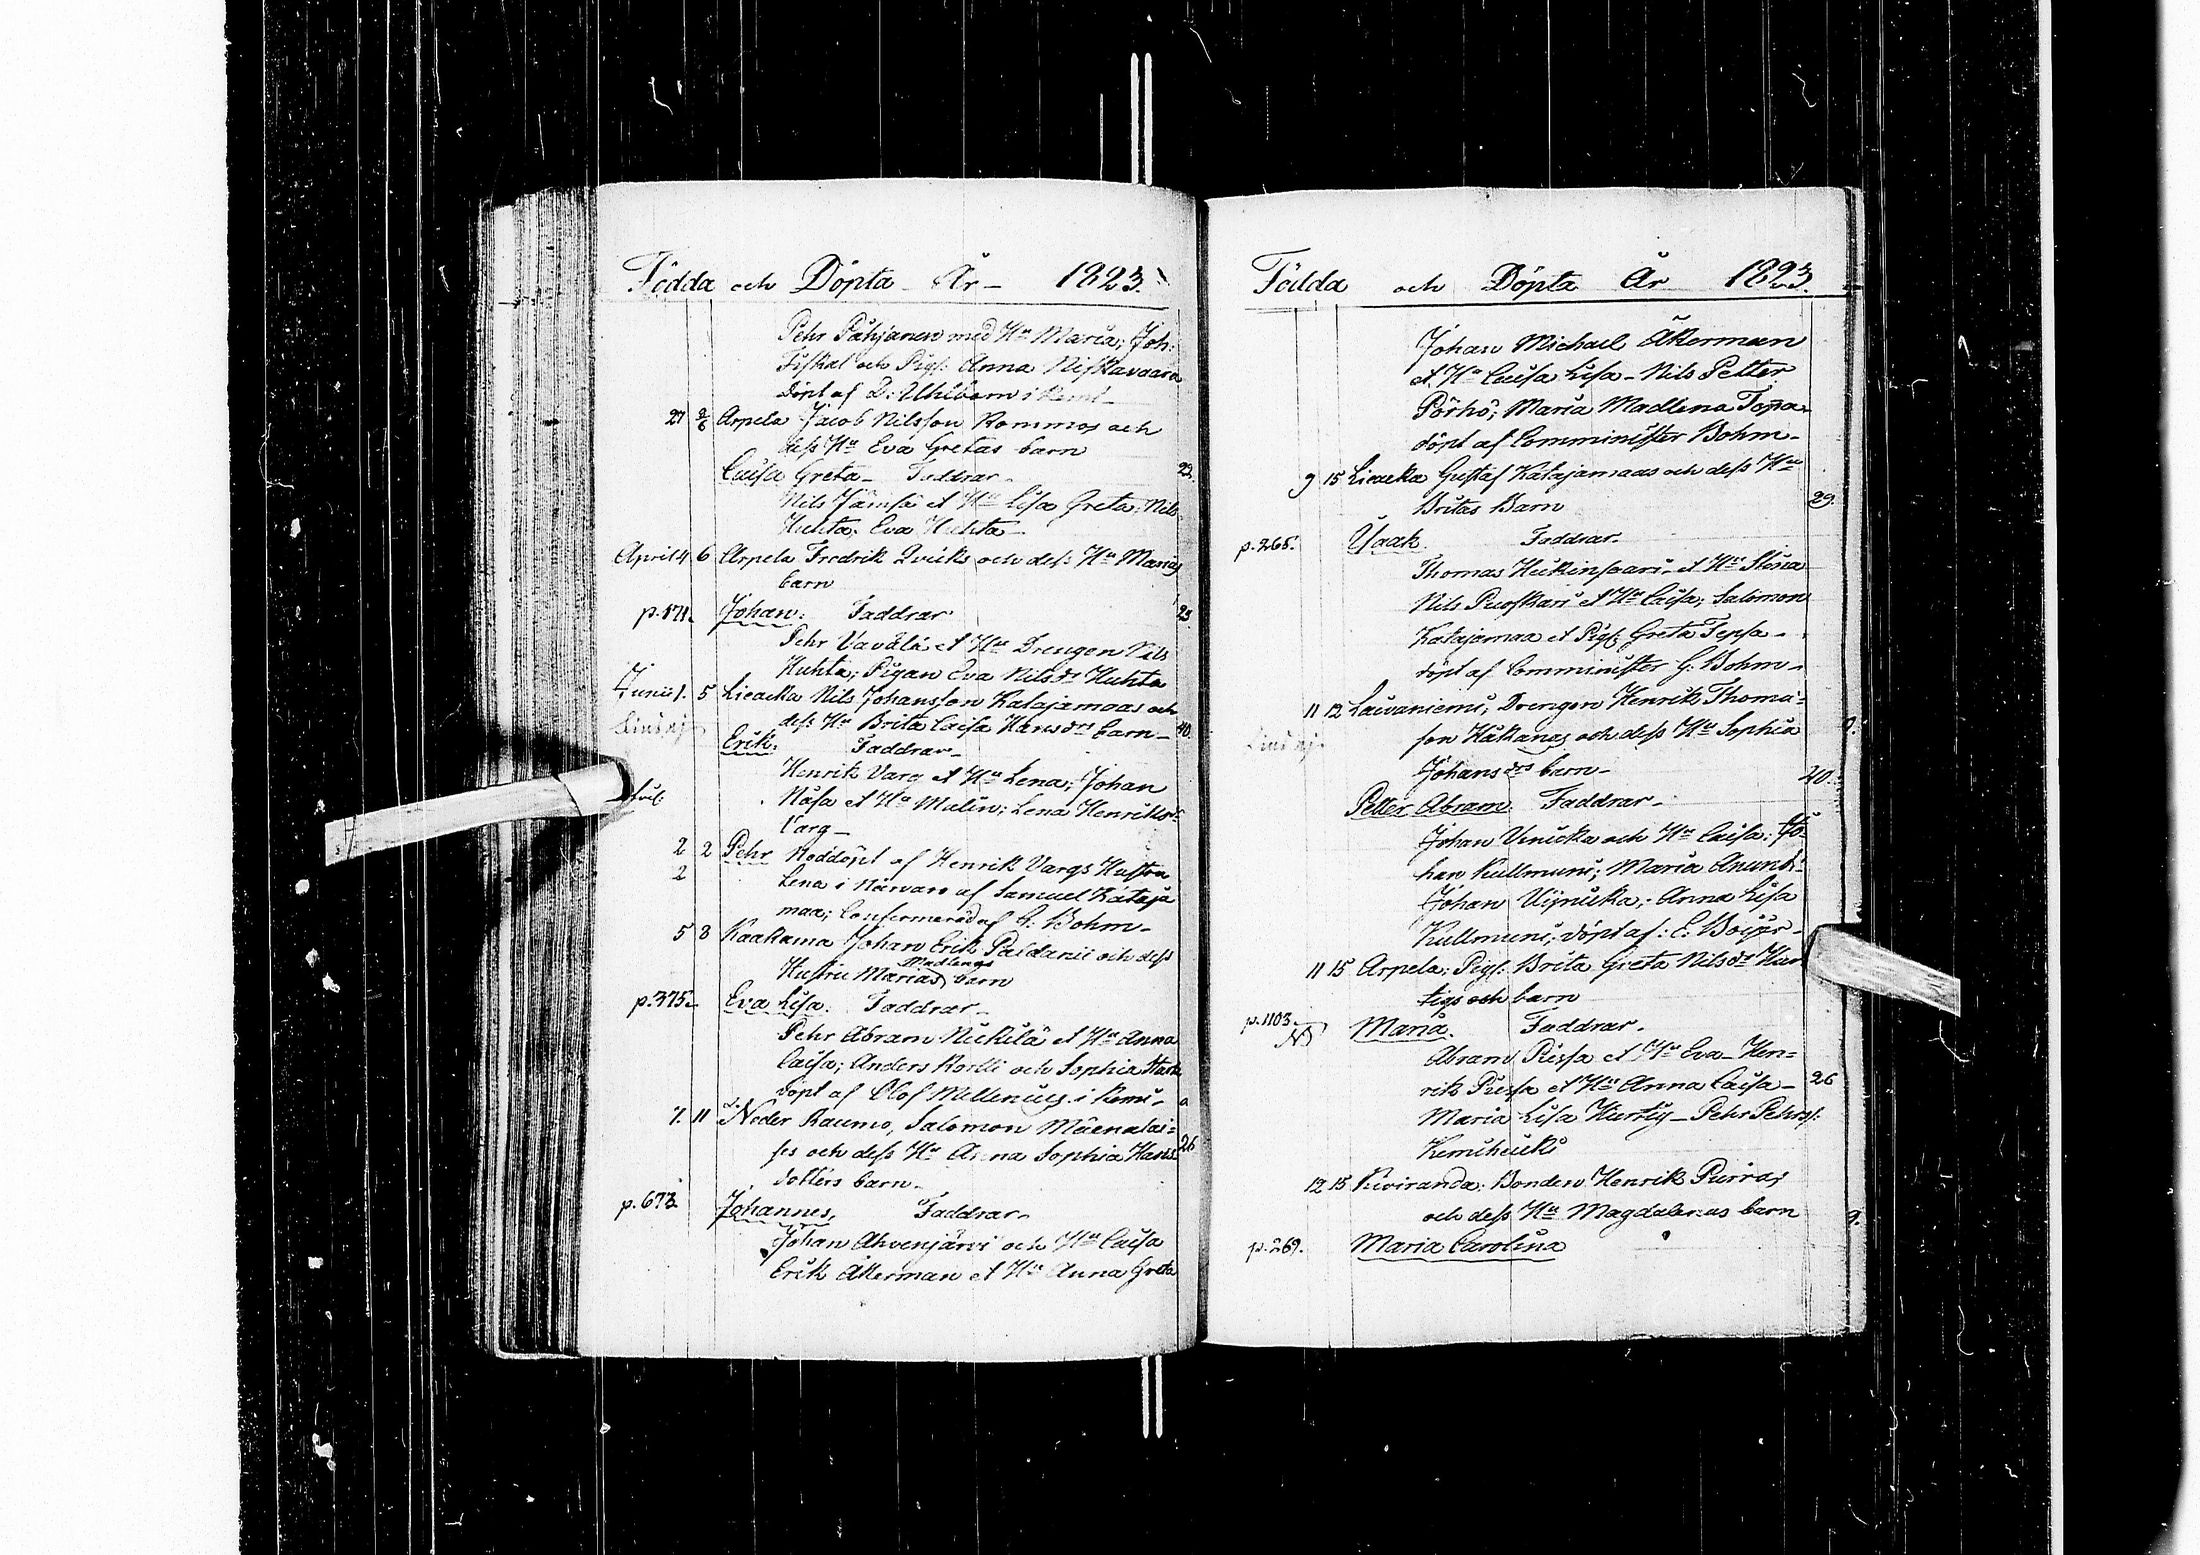 Födda och Döpta År 1823.
Pehr Pahjanen med Hu Maria; Joh:
Fiskal och Pig: Anna Niskavaara
döpt af D: Uhlbom i Kemi
27 2/6 Arpela Jacob Nilsson Rommos och
dess Hu Eva Gretas barn
Caisa Greta - Faddrar - 23.
Nils Jämsä et Hu Lisa Greta; Nils
Huhta; Eva Huhta -
April 4 6 Arpela Fredrik Qvicks och dess Hu Marias
barn
p. 171. Johan: Faddrar 23.
Pehr Vavälä et Hu Drengen Nils
Huhta; Pigan Eva Nilsdr Huhta
Junii 1. 5 Lieacka Nils Johansson Katajamaas och
dess Hu Brita Caisa Hansdrs barn - 40.
Erik: Faddrar -
Henrik Varg et Hu Lena; Johan
Näsa et Hu Malin; Lena Henriksdr
Varg -
2 2 Pehr Nöddöpt af Henrik Vargs Hustru
2 Lena i Närvaro af Samuel Kataja
maa; Confirmerad af G. Bohm -
5 8 Kaakama Johan Erik Paldanii och dess
Hustru Marias Madlenas barn
p. 375. Eva Lisa: Faddrar -
Pehr Abram Nickilä et Hu Anna
Caisa; Anders Korlli och Sophia Stark
döpt af Olof Mellenius i Kemi -
7. 11 Neder Raumo, Salomon Mäenalai=
ses och dess Hu Anna Sophia Hans 26
dotters barn -
p. 673 Johannes, Faddrar -
Johan Ahvenjärvi och Hu Caisa
Erik Åkerman et Hu Anna Greta
Födda och Döpta År 1823.
Johan Michael Åkerman
et Hu Caisa Lisa - Nils Petter
Pörhö; Maria Madlena Topa -
döpt af Comminister Bohm -
9 15 Lieacka Gustaf Katajamaas och dess Hu
Britas Barn 29.
p. 265. Isaak. Faddrar.
Thomas Heikinpari - et Hu Stina
Nils Puoskari et Hu Caisa; Salomon
Katajamaa et Pig: Greta Tepsa -
döpt af Comminister G. Bohm -
11 12 Laivaniemi, Drengen Henrik Thoma=
son Häkanas och dess Hu Sophia
Johansdrs barn - 40.
Petter Abram: Faddrar -
Johan Vinicka och Hu Caisa; Jo=
han Kullmuni; Maria Anundi -
Johan Viinicka; Anna Lisa
Kullmuni; döpt af: C. Boijer -
11 15 Arpela; Pigs: Brita Greta Nilsdr Hur
tigs och barn
p. 1103. Maria. Faddrar.
Abram Piessa et Hu Eva - Hen=
rik Piessa et Hu Anna Caisa - 26
Maria Lisa Hurtig - Pehr Pehrss:
Kemiheicki
12 15 Kiviranda: Bonden Henrik Purras
och dess Hu Magdalenas barn 9.
p. 269. Maria Carolina